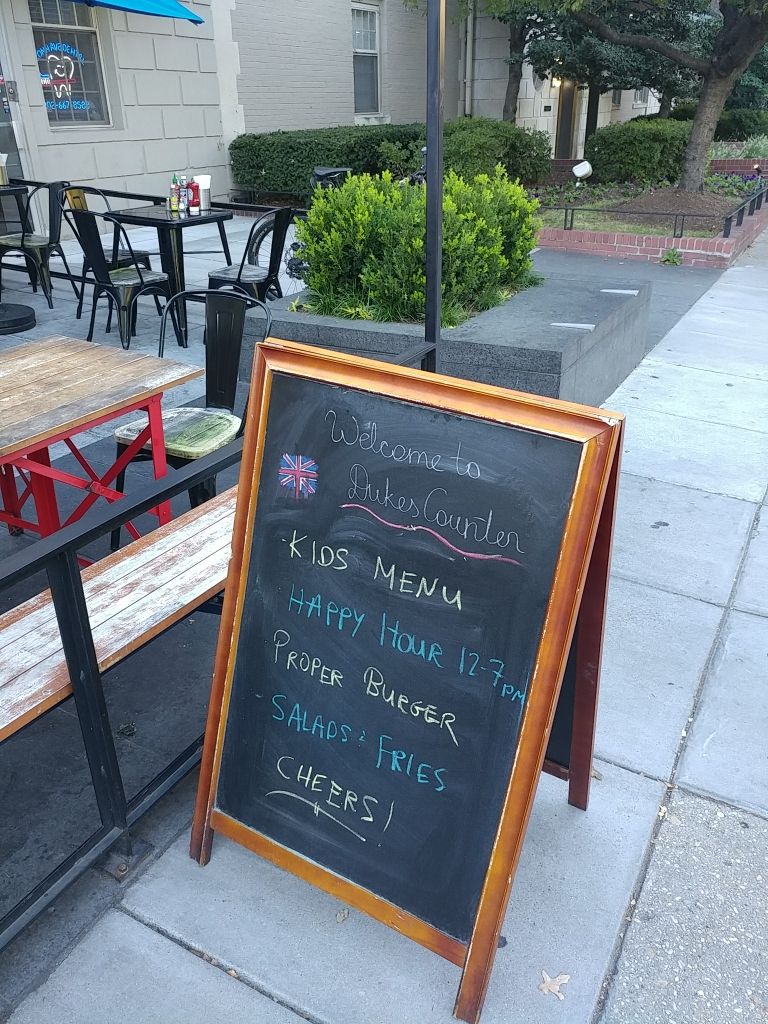 Welcome to
Dukes Counter
KIDS MENU
HAPPY HOUR 12-7PM
PROPER BURGER
SALADS & FRIES
CHEERS!